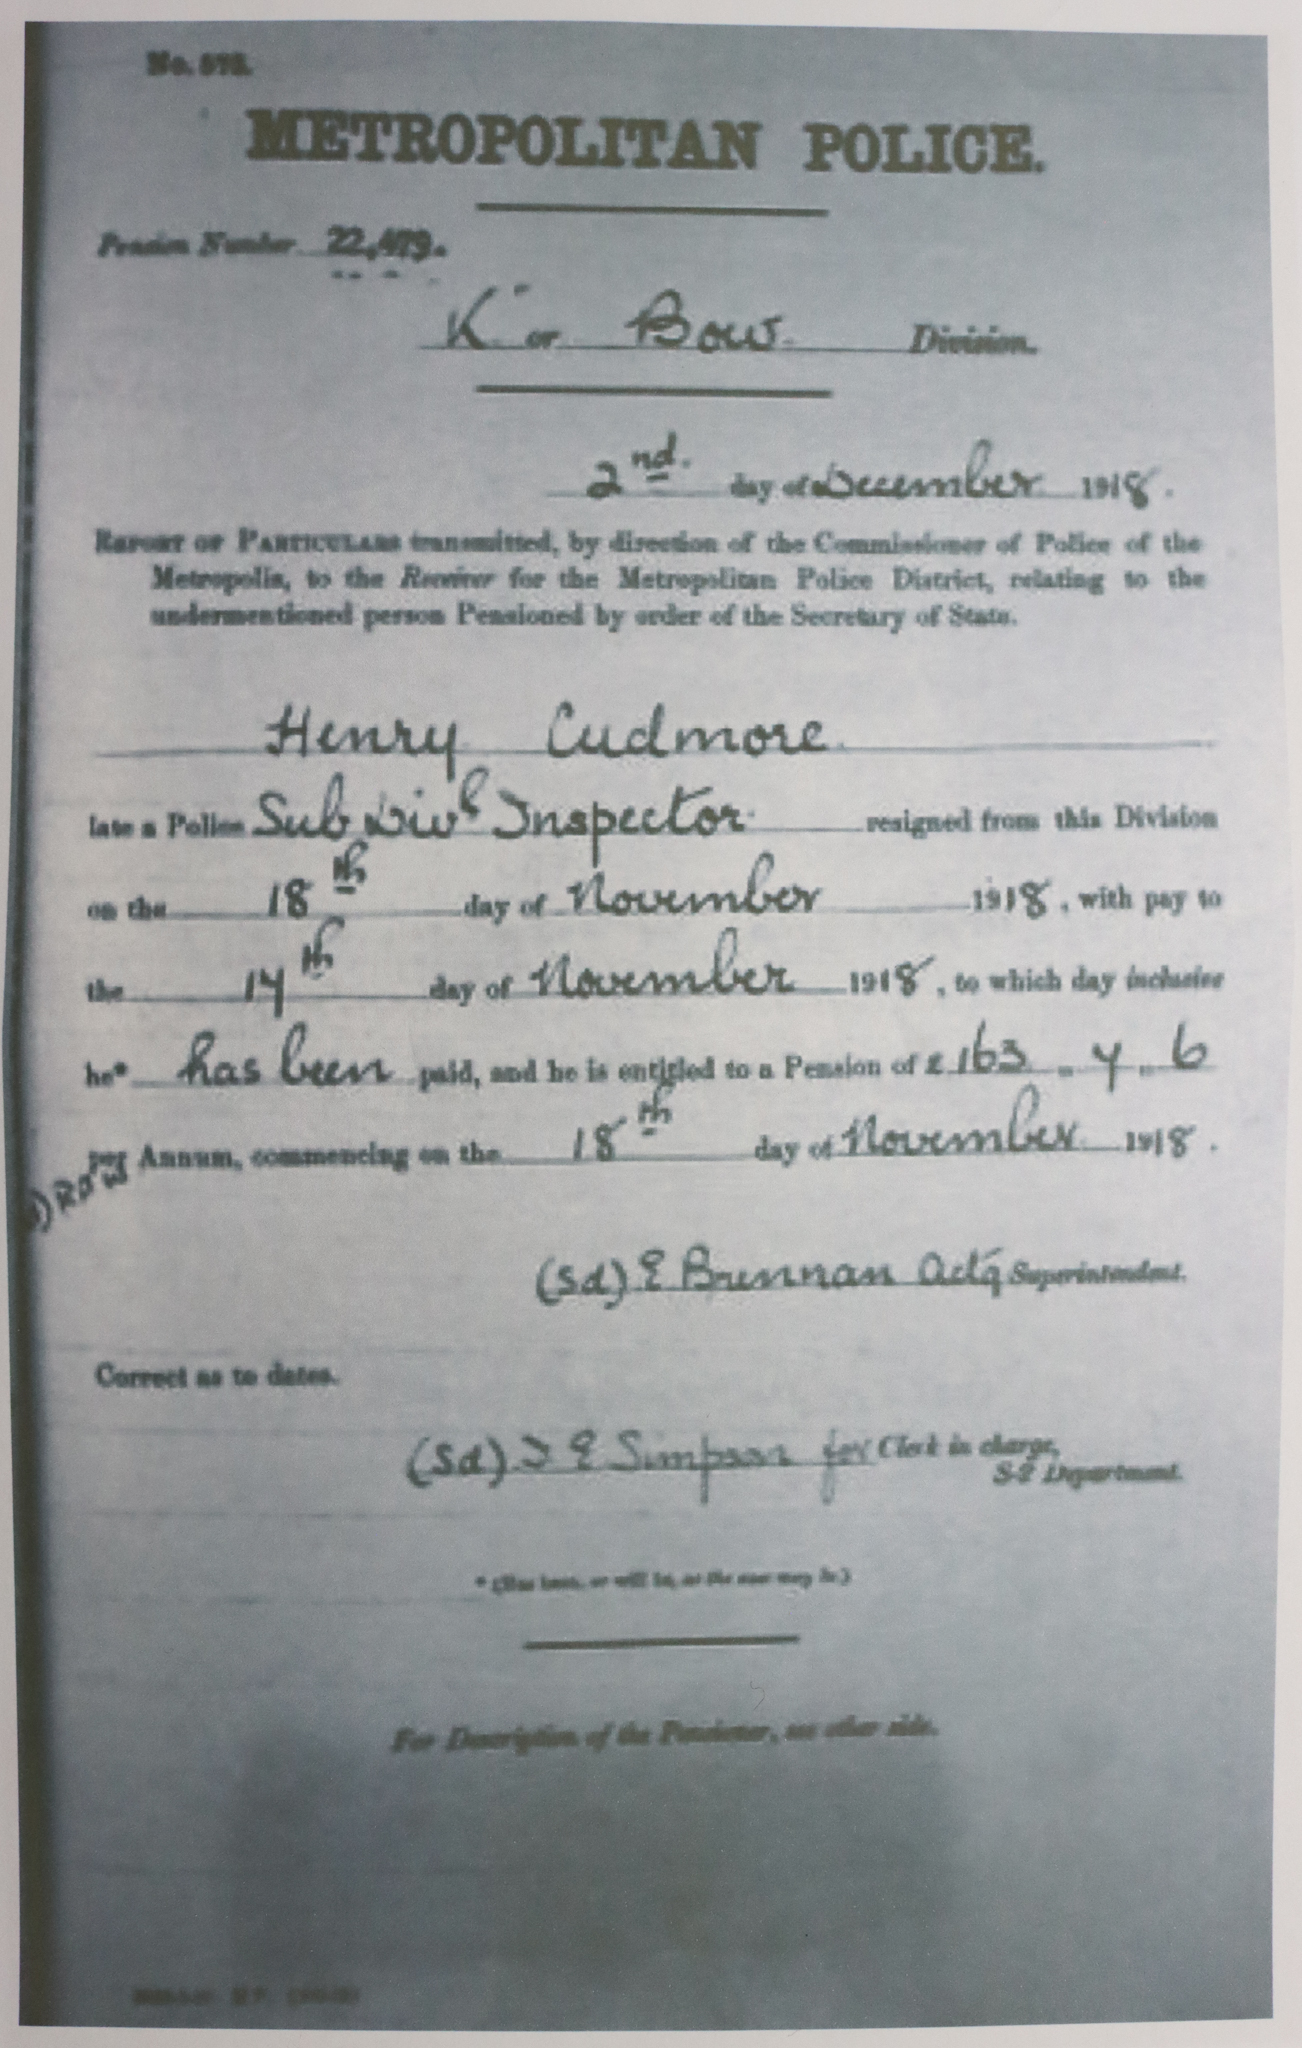 METROPOLITAN POLICE.
Pension Number 22,479.
"K" or Bow Division.
2nd. day of December 1918.
REPORT OF PARTICULARS transmitted, by direction of the Commissioner of Police of the
Metropolis, to the Receiver for the Metropolitan Police District, relating to the
undermentioned person Pensioned by order of the Secretary of State.
Henry Cudmore
late a Police Sub Divl Inspector resigned from this Division
on the 18th day of November 1918, with pay to
the 17th day of November 1918, to which day inclusive
he* has been paid, and he is entitled to a Pension of £163 „ 7 „ 6
per Annum, commencing on the 18th day of November 1918.
(Sd) E Brennan Actg Superintendent.
Correct as to dates.
(Sd) E Simpson for Clerk in charge,
Department.
* (Has been, or will be, as the case may be.)
For Description of the Pensioner, see other side.